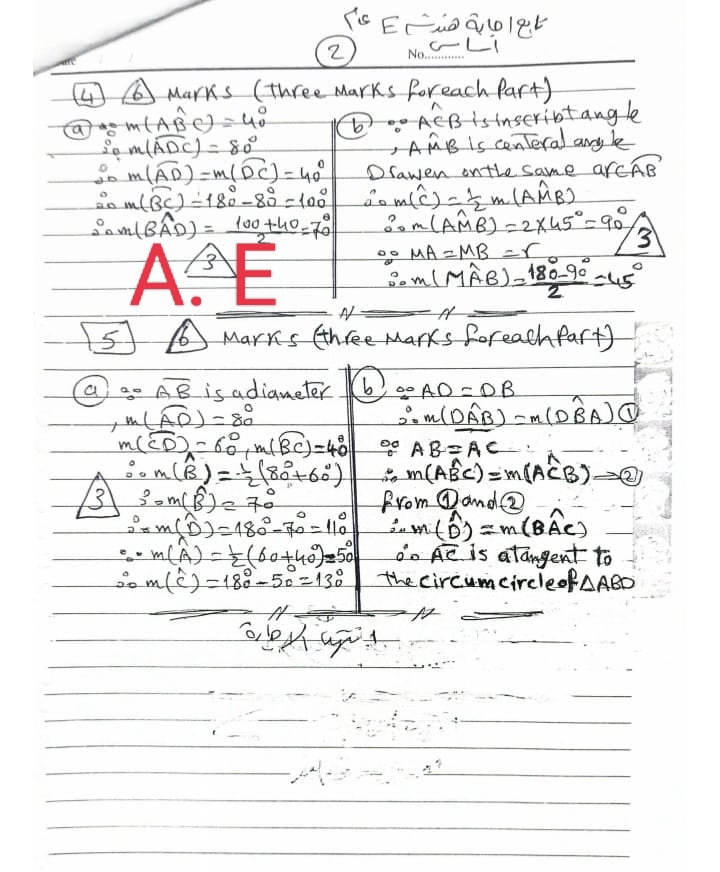 تابع اجابة هندسة E عام
أساسى
2
No............
4 6 Marks (three Marks foreach Part)
a ∵ m(AB̂C) = 40°
∴ m(ADC) = 80°
∴ m(AD) = m(DC) = 40°
∴ m(BC) = 180° - 80° = 100°
∴ m(BÂD) = 100+40/2 = 70°
3
A. E
b ∵ AĈB is inscript angle
, AM̂B is centeral angle
Drawen on the same arc AB
∴ m(Ĉ) = ½ m(AM̂B)
∴ m(AM̂B) = 2×45° = 90°
3
∵ MA = MB = r
∴ m(MÂB) = 180°-90°/2 = 45°
5 6 Marks (three Marks foreach Part)
a ∵ AB is a diameter
, m(AD) = 80°
m(CD) = 60°, m(BC) = 40°
∴ m(B̂) = ½(80°+60°)
3
∴ m(B̂) = 70°
∴ m(D̂) = 180° - 70° = 110°
∵ m(Â) = ½(60+40°) = 50°
∴ m(Ĉ) = 180° - 50° = 130°
b ∵ AD = DB
∴ m(DÂB) = m(DB̂A) ①
∵ AB = AC
∴ m(AB̂C) = m(AĈB) → ②
from ① and ②
∴ m(D̂) = m(BÂC)
∴ AC is a tangent to
the circumcircle of △ABD
انتهت الإجابة